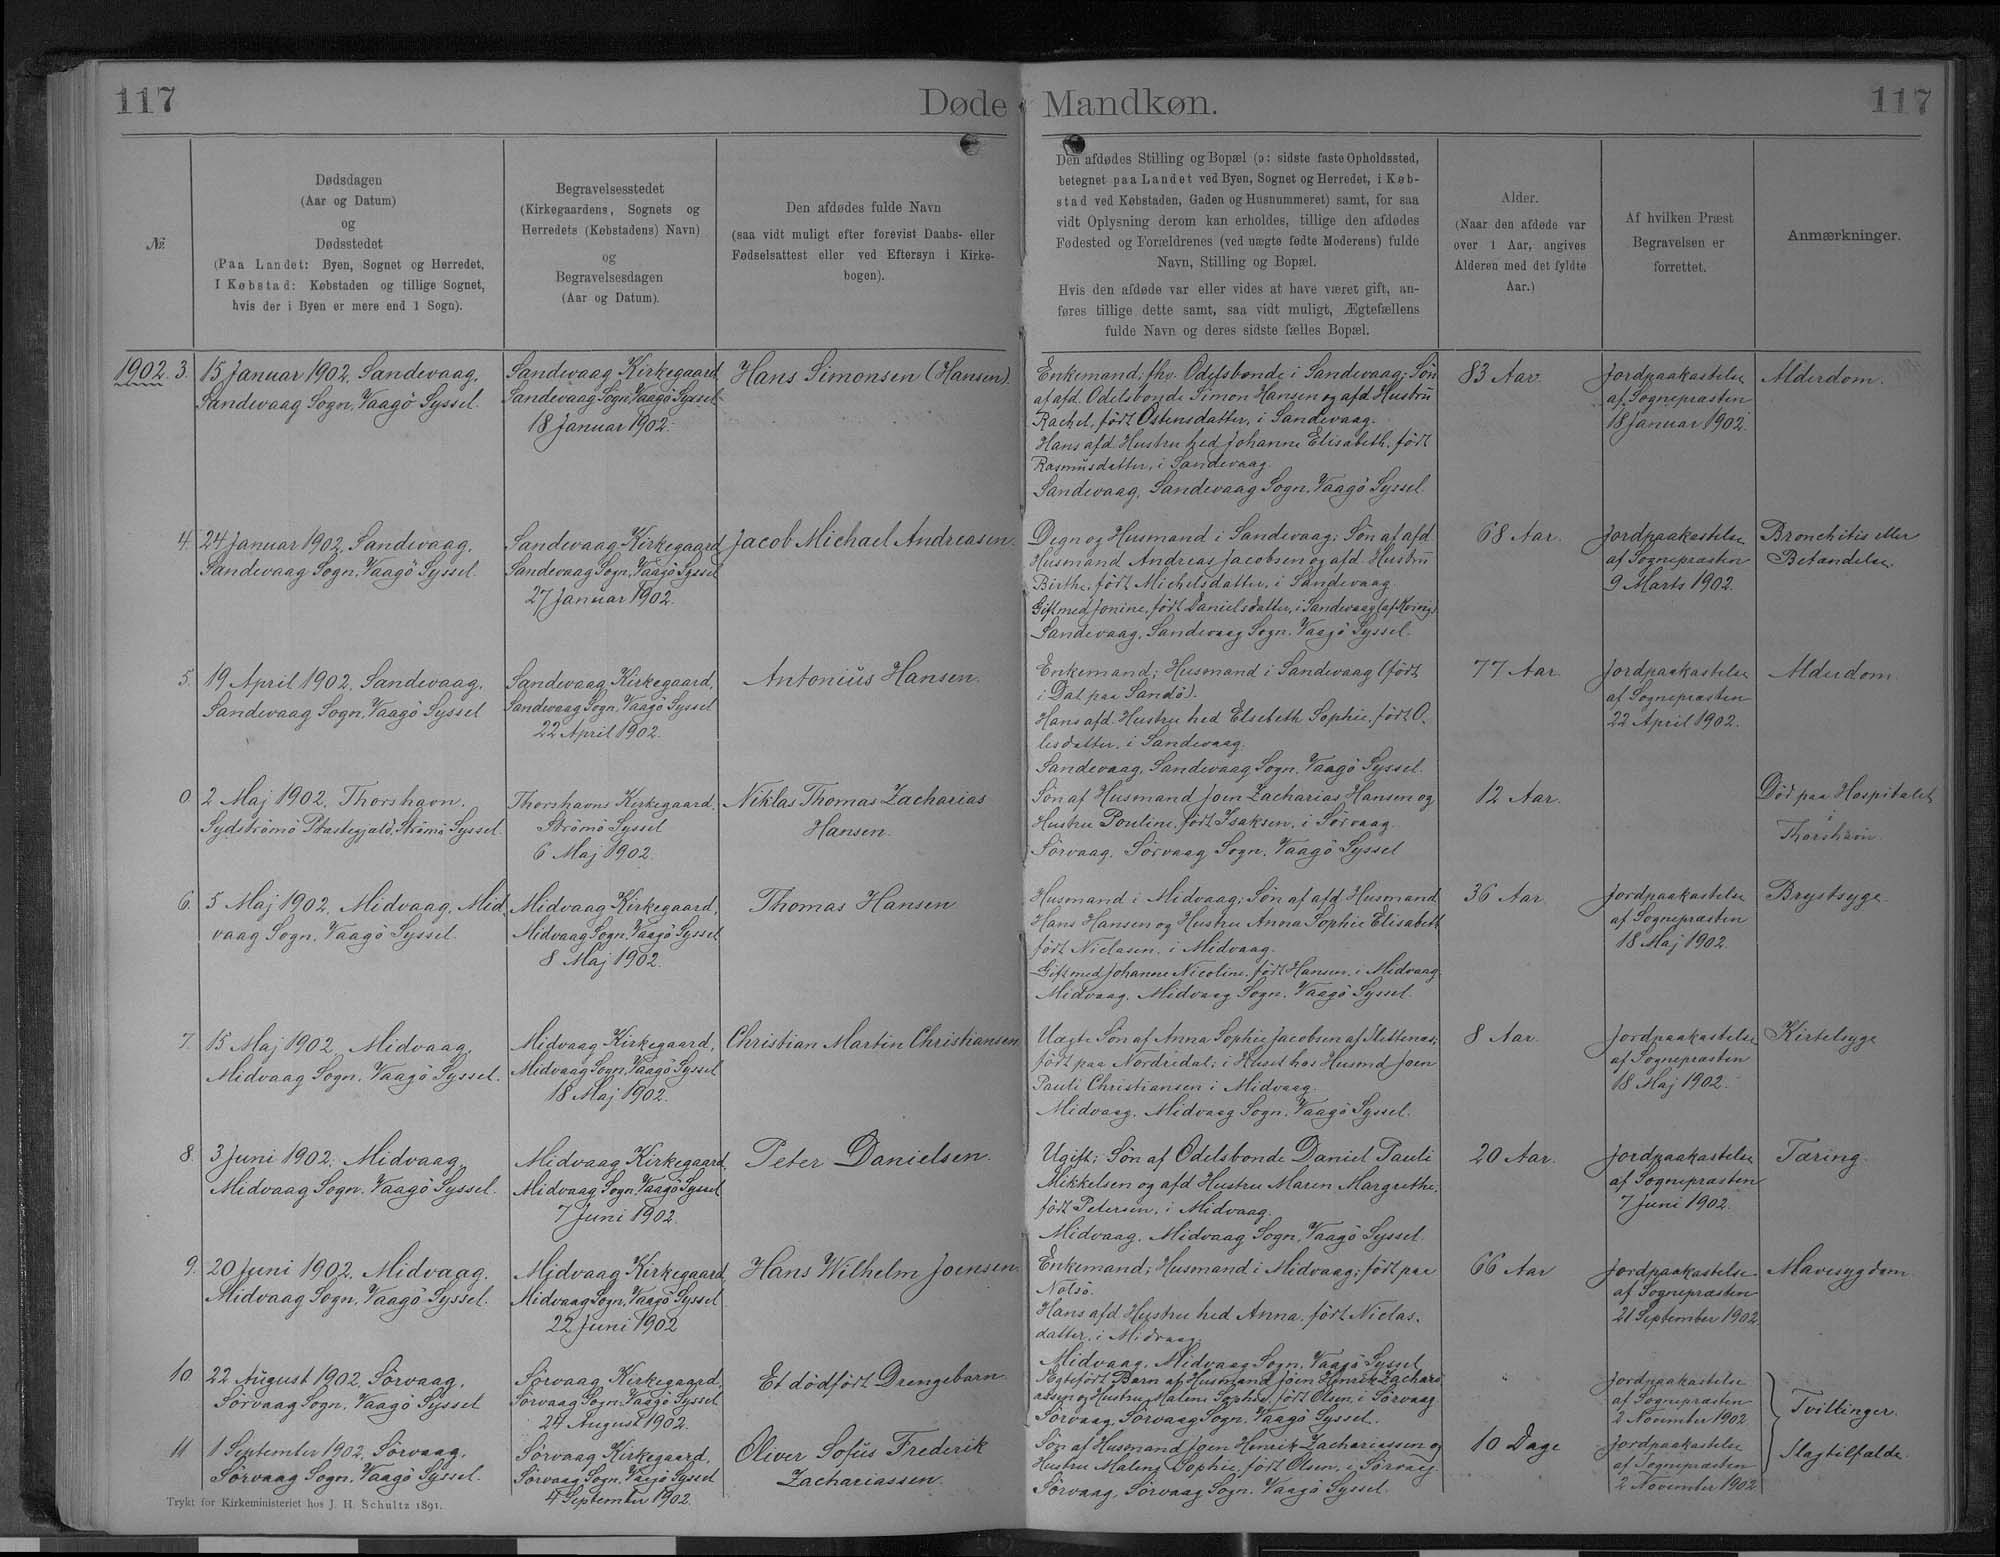 117
Døde
Mandkøn.
117
№
Dødsdagen
(Aar og Datum)
og
Dødsstedet
(Paa Landet: Byen, Sognet og Herredet,
I Købstad: Købstaden og tillige Sognet,
hvis der i Byen er mere end 1 Sogn).
Begravelsesstedet
(Kirkegaardens, Sognets og
Herredets (Købstadens) Navn)
og
Begravelsesdagen
(Aar og Datum).
Den afdødes fulde Navn
(saa vidt muligt efter forevist Daabs- eller
Fødselsattest eller ved Eftersyn i Kirke-
bogen).
Den afdødes Stilling og Bopæl (ɔ: sidste faste Opholdssted,
betegnet paa Landet ved Byen, Sognet og Herredet, i Køb-
stad ved Købstaden, Gaden og Husnummeret) samt, for saa
vidt Oplysning derom kan erholdes, tillige den afdødes
Fødested og Forældrenes (ved uægte fødte Moderens) fulde
Navn, Stilling og Bopæl.
Hvis den afdøde var eller vides at have været gift, an-
føres tillige dette samt, saa vidt muligt, Ægtefællens
fulde Navn og deres sidste fælles Bopæl.
Alder.
(Naar den afdøde var
over 1 Aar, angives
Alderen med det fyldte
Aar.)
Af hvilken Præst
Begravelsen er
forrettet.
Anmærkninger.
1902. 3.
15 Januar 1902, Sandevaag,
Sandevaag Sogn, Vaagö Syssel.
Sandevaag Kirkegaard
Sandevaag Sogn, Vaagö Syssel
18 Januar 1902.
Hans Simonsen (Hansen).
Enkemand, fhv. Odelsbonde i Sandevaag; Søn
af afd. Odelsbonde Simon Hansen og afd. Hustru
Rachel, født Østensdatter, i Sandevaag.
Hans afd. Hustru hed Johanne Elisabeth, født
Rasmusdatter, i Sandevaag.
Sandevaag, Sandevaag Sogn, Vaagö Syssel.
83 Aar.
Jordpaakastelse
af Sognepræsten
18 Januar 1902.
Alderdom.
4.
24 Januar 1902, Sandevaag,
Sandevaag Sogn, Vaagö Syssel.
Sandevaag Kirkegaard
Sandevaag Sogn, Vaagö Syssel
27 Januar 1902.
Jacob Michael Andreasen.
Degn og Husmand i Sandevaag; Søn af afd.
Husmand Andreas Jacobsen og afd. Hustru
Birthe, født Michelsdatter, i Sandevaag.
Gift med Jonine, født Danielsdatter, i Sandevaag
Sandevaag, Sandevaag Sogn, Vaagö Syssel.
68 Aar.
Jordpaakastelse
af Sognepræsten
9 Marts 1902.
Bronchitis eller
Betændelse.
5.
19 April 1902, Sandevaag,
Sandevaag Sogn, Vaagö Syssel
Sandevaag Kirkegaard,
Sandevaag Sogn, Vaagö Syssel
22 April 1902.
Antonius Hansen.
Enkemand; Husmand i Sandevaag (født
i Dal paa Sandö).
Hans afd. Hustru hed Elsebeth Sophie, født O-
lesdatter, i Sandevaag.
Sandevaag, Sandevaag Sogn, Vaagö Syssel.
77 Aar.
Jordpaakastelse
af Sognepræsten
22 April 1902.
Alderdom.
0
2 Maj 1902, Thorshavn,
Sydströmö Præstegjæld, Strömö Syssel.
Thorshavns Kirkegaard,
Strömö Syssel
6 Maj 1902.
Niklas Thomas Zacharias
Hansen.
Søn af Husmand Joen Zacharias Hansen og
Hustru Pouline, født Isaksen, i Sörvaag.
Sörvaag, Sörvaag Sogn, Vaagö Syssel
12 Aar.
Död paa Hospitalet
Thorshavn
6.
5 Maj 1902, Midvaag, Mid-
vaag Sogn, Vaagö Syssel.
Midvaag Kirkegaard,
Midvaag Sogn, Vaagö Syssel
8 Maj 1902.
Thomas Hansen
Husmand i Midvaag; Søn af afd. Husmand
Hans Hansen og Hustru Anna Sophie Elisabeth
født Niclasen, i Midvaag.
Gift med Johanne Nicoline, født Hansen, i Midvaag.
Midvaag, Midvaag Sogn, Vaagö Syssel.
36 Aar.
Jordpaakastelse
af Sognepræsten
18 Maj 1902.
Brystsyge.
7.
15 Maj 1902, Midvaag,
Midvaag Sogn, Vaagö Syssel.
Midvaag Kirkegaard,
Midvaag Sogn, Vaagö Syssel
18 Maj 1902.
Christian Martin Christiansen
Uægte Søn af Anna Sophie Jacobsen af
født paa Nordredal; i Huset hos Husmd Joen
Pauli Christiansen i Midvaag.
Midvaag, Midvaag Sogn, Vaagö Syssel.
8 Aar.
Jordpaakastelse
af Sognepræsten
18 Maj 1902.
Kirtelsyge
8.
3 Juni 1902, Midvaag,
Midvaag Sogn, Vaagö Syssel.
Midvaag Kirkegaard,
Midvaag Sogn, Vaagö Syssel
7 Juni 1902.
Peter Danielsen.
Ugift; Søn af Odelsbonde Daniel Pauli
Mikkelsen og afd Hustru Maren Margrethe,
født Petersen, i Midvaag.
Midvaag, Midvaag Sogn, Vaagö Syssel.
20 Aar.
Jordpaakastelse
af Sognepræsten
7 Juni 1902.
Tæring.
9.
20 Juni 1902, Midvaag,
Midvaag Sogn, Vaagö Syssel.
Midvaag Kirkegaard
Midvaag Sogn, Vaagö Syssel
22 Juni 1902
Hans Wilhelm Joensen.
Enkemand; Husmand i Midvaag; født paa
Nolsö.
Hans afd Hustru hed Anna, født Niclas-
datter, i Midvaag.
Midvaag, Midvaag Sogn, Vaagö Syssel
66 Aar
Jordpaakastelse
af Sognepræsten
21 September 1902.
Mavesygdom
10.
22 August 1902, Sörvaag,
Sörvaag Sogn, Vaagö Syssel
Sörvaag Kirkegaard,
Sörvaag Sogn, Vaagö Syssel
24 August 1902.
Et dödfödt Drengebarn.
Ægtefødt Barn af Husmand Joen Henrik Zachari-
assen og Hustru Malene Sophie, født Olsen, i Sörvaag
Sörvaag, Sörvaag Sogn, Vaagö Syssel.
"
Jordpaakastelse
af Sognepræsten
2 November 1902
Tvillinger.
11
1 September 1902, Sörvaag,
Sörvaag Sogn, Vaagö Syssel.
Sörvaag Kirkegaard,
Sörvaag Sogn, Vaagö Syssel
4 September 1902.
Oliver Sofus Frederik
Zachariassen.
Søn af Husmand Joen Henrik Zachariassen og
Hustru Malene Sophie, født Olsen, i Sörvaag.
Sörvaag, Sörvaag Sogn, Vaagö Syssel.
10 Dage
Jordpaakastelse
af Sognepræsten
2 November 1902
Slagtilfælde.
Trykt for Kirkeministeriet hos J. H. Schultz 1891.